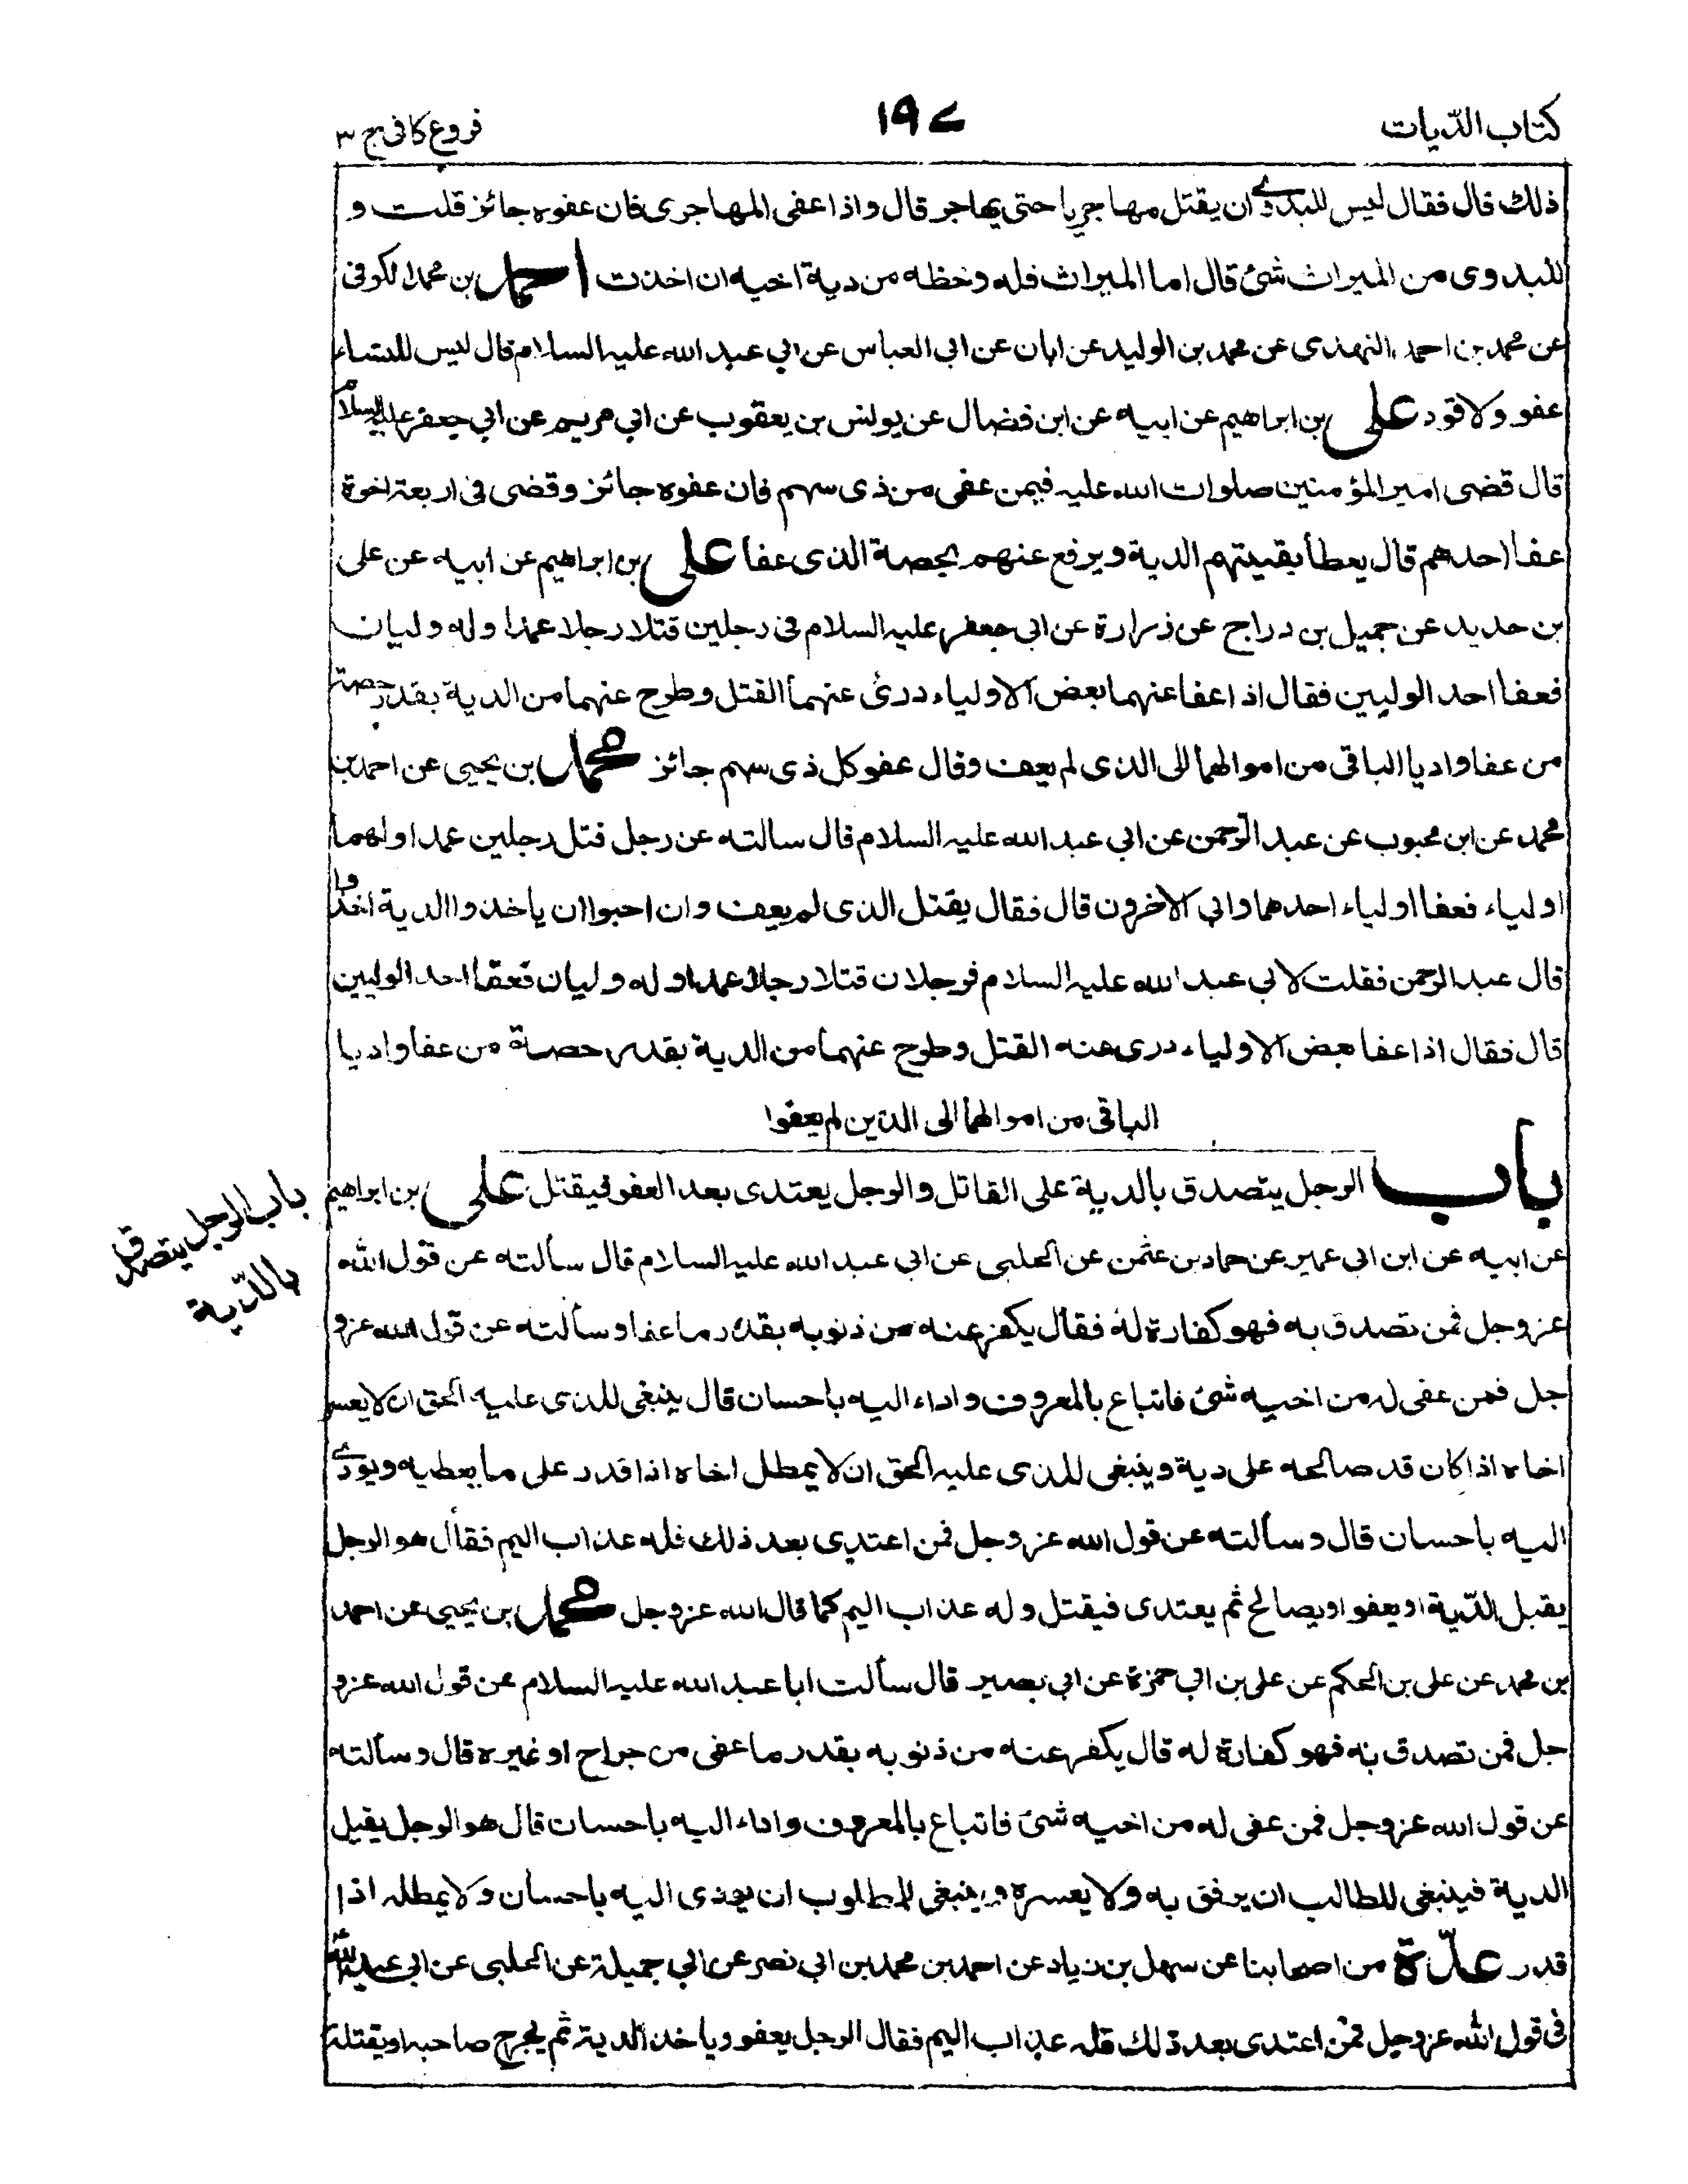 كتاب الدّيات
١٩٧
فروع كافى ج ٣
ذلك قال فقال ليس للبدوى ان يقتل مهاجريا حتى يهاجر قال واذا عفى المهاجرى فان عفوه جائز قلت و
للبدوى من الميراث شئ قال اما الميراث فله وحظه من دية اخيه ان اخذت احمد بن محمد الكوفى
عن محمد بن احمد النهدى عن محمد بن الوليد عن ابان عن ابى العباس عن ابي عبد الله عليه السلام قال ليس للنساء
عفو ولا قود على بن ابراهيم عن ابيه عن ابن فضال عن يونس بن يعقوب عن ابي مريم عن ابي جعفر عليه السلام
قال قضى امير المؤمنين صلوات الله عليه فيمن عفى من ذى سهم فان عفوه جائز وقضى فى اربعة اخوة
عفا احدهم قال يعطا بقيتهم الدية ويرفع عنهم بحصة الذى عفا على بن ابراهيم عن ابيه عن على
بن حديد عن جميل بن دراج عن زرارة عن ابى جعفر عليه السلام فى رجلين قتلا رجلا عمدا وله وليان
فعفا احد الوليين فقال اذا عفا عنهما بعض الاولياء درئ عنهما القتل وطرح عنهما من الدية بقدر حصة
من عفا واديا الباقى من اموالهما الى الذى لم يعف وقال عفو كل ذى سهم جائز محمد بن يحيى عن احمد بن
محمد عن ابن محبوب عن عبد الرحمن عن ابي عبد الله عليه السلام قال سالته عن رجل قتل رجلين عمدا ولهما
اولياء فعفا اولياء احدهما وابى الاخرون قال فقال يقتل الذى لم يعف وان احبوا ان ياخذوا الدية اخذوا
قال عبد الرحمن فقلت لابي عبد الله عليه السلام فرجلان قتلا رجلا عمدا وله وليان فعفا احد الوليين
قال فقال اذا عفا بعض الاولياء درى عنه القتل وطرح عنهما من الدية بقدر حصة من عفا واديا
الباقى من اموالهما الى الذين لم يعفوا
باب الرجل يتصدق بالدية على القاتل والرجل يعتدى بعد العفو فيقتل على بن ابراهيم
باب الرجل يتصدق
بالدّية
عن ابيه عن ابن ابى عمير عن حماد بن عثمن عن الحلبى عن ابي عبد الله عليه السلام قال سألته عن قول الله
عزوجل فمن تصدق به فهو كفارة له فقال يكفر عنه من ذنوبه بقدر ما عفا وسألته عن قول الله عزو
جل فمن عفى له من اخيه شئ فاتباع بالمعروف واداء اليه باحسان قال ينبغى للذى عليه الحق ان لا يعسر
اخاه اذا كان قد صالحه على دية وينبغى للذى عليه الحق ان لا يمطل اخاه اذا قدر على ما يعطيه ويودى
اليه باحسان قال وسألته عن قول الله عزوجل فمن اعتدى بعد ذلك فله عذاب اليم فقال هو الرجل
يقبل الدّية او يعفو او يصالح ثم يعتدى فيقتل وله عذاب اليم كما قال الله عزوجل محمد بن يحيى عن احمد
بن محمد عن على بن الحكم عن على بن ابي حمزة عن ابي بصير قال سألت ابا عبد الله عليه السلام عن قول الله عزو
جل فمن تصدق به فهو كفارة له قال يكفر عنه من ذنوبه بقدر ما عفى من جراح او غيره قال وسألته
عن قول الله عزوجل فمن عفى له من اخيه شئ فاتباع بالمعروف واداء اليه باحسان قال هو الرجل يقبل
الدية فينبغى للطالب ان يرفق به ولا يعسره وينبغى للمطلوب ان يودى اليه باحسان ولا يمطله اذا
قدر عدّة من اصحابنا عن سهل بن زياد عن احمد بن محمد بن ابي نصر عن ابي جميلة عن الحلبى عن ابى عبد الله
فى قول الله عزوجل فمن اعتدى بعد ذلك فله عذاب اليم فقال الرجل يعفو وياخذ الدية ثم يجرح صاحبه او يقتله